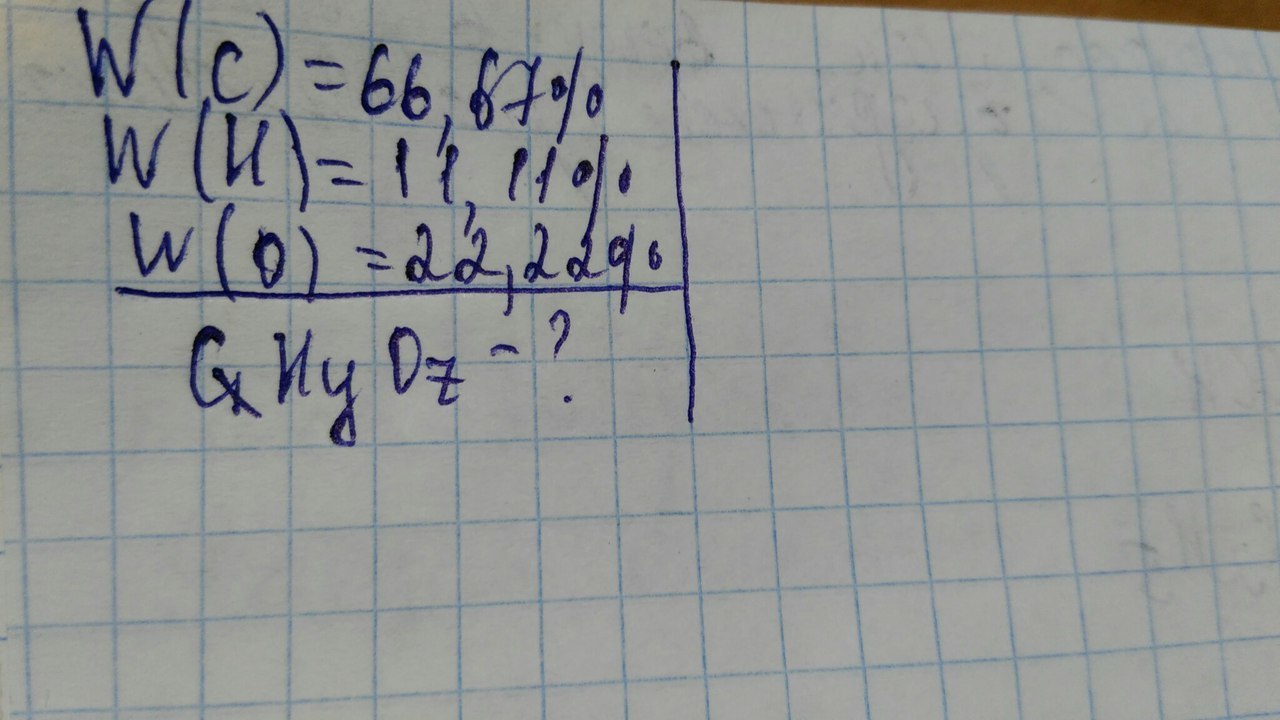 W(C) = 66,67%
W(H) = 11,11%
W(O) = 22,22%
CxHyOz - ?